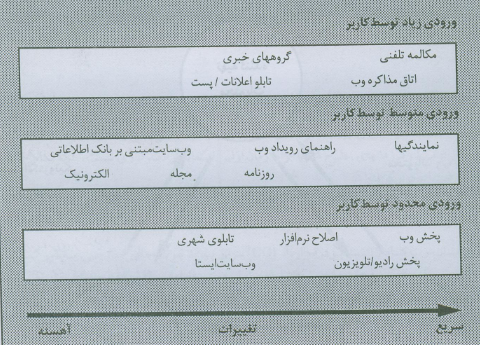 ورودی زیاد توسط کاربر
مکالمه تلفنی گروههای خبری
اتاق مذاکره وب تابلو اعلانات / پست
ورودی متوسط توسط کاربر
نمایندگیها راهنمای رویداد وب وب‌سایت‌مبتنی بر بانک اطلاعاتی
روزنامه مجله الکترونیک
ورودی محدود توسط کاربر
پخش وب اصلاح نرم‌افزار تابلوی شهری
پخش رادیو/تلویزیون وب‌سایت‌ایستا
سریع تغییرات آهسته